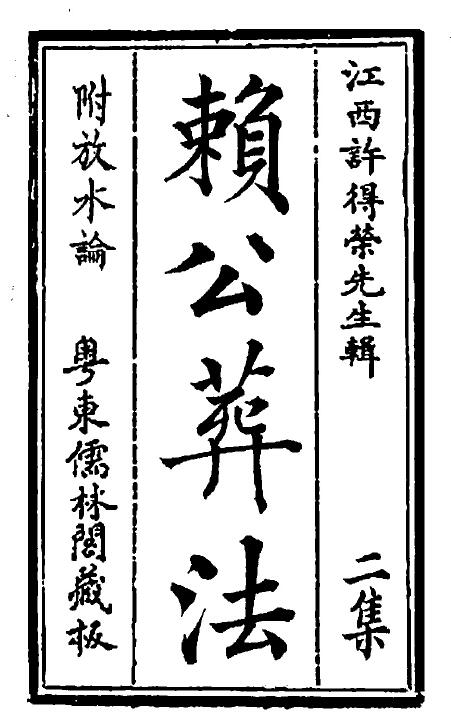 江西許得榮先生輯 二集
賴公葬法
附放水論 粵東儒林閣藏板